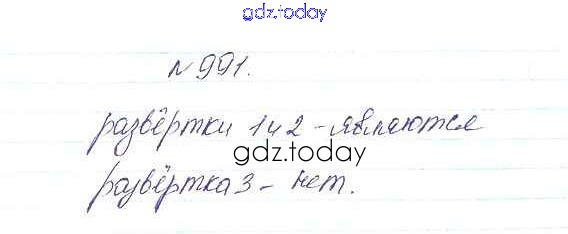 gdz.today
№991.
развёртки 1 и 2 - являются
gdz.today
развёртка 3 - нет.